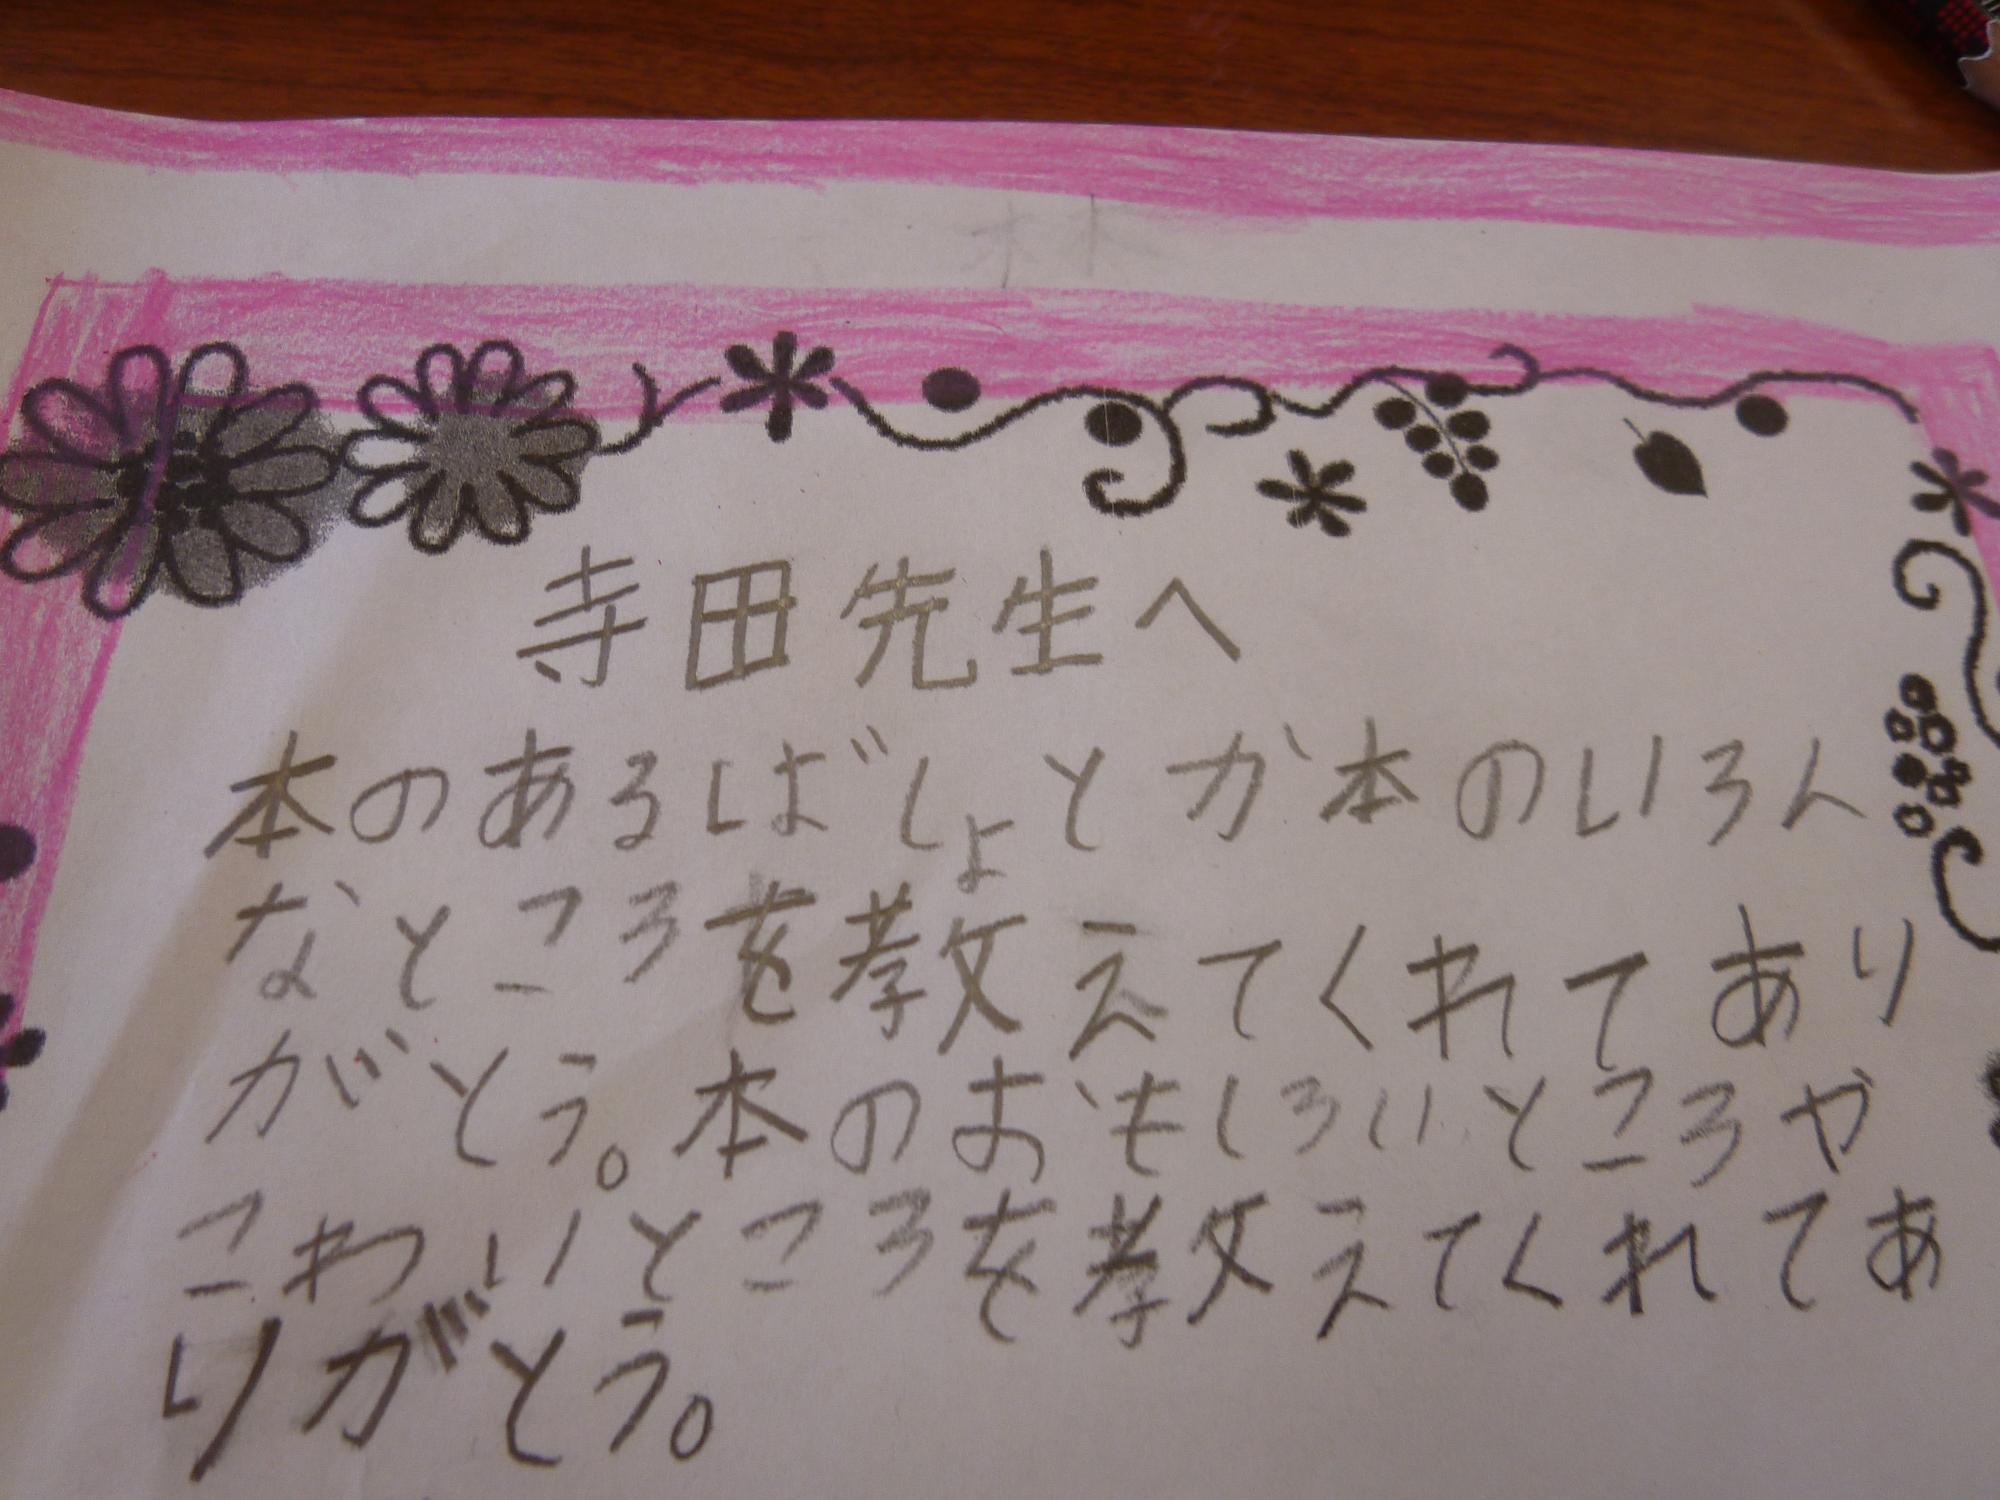 寺田先生へ
本のあるばしょとか本のいろん
なところを教えてくれてあり
がとう。本のおもしろいところや
こわいところを教えてくれてあ
りがとう。